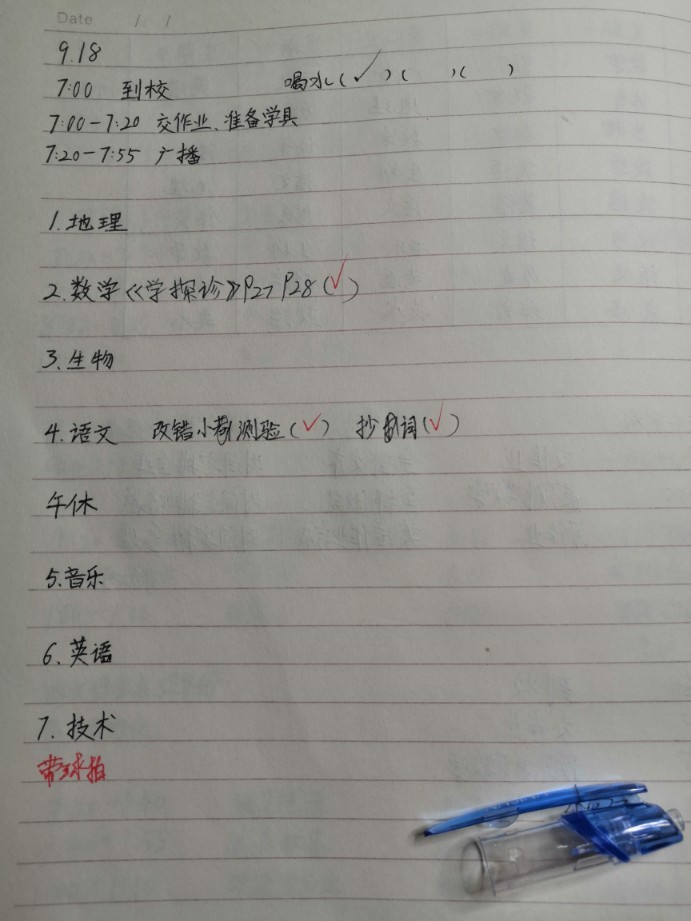 Date / /
9.18
7:00 到校 喝水(✓)( )( )
7:00-7:20 交作业、准备学具
7:20-7:55 广播
1.地理
2.数学《学探诊》P27 P28(✓)
3.生物
4.语文 改错小测验(✓) 抄词(✓)
午休
5.音乐
6.英语
7.技术
带球拍